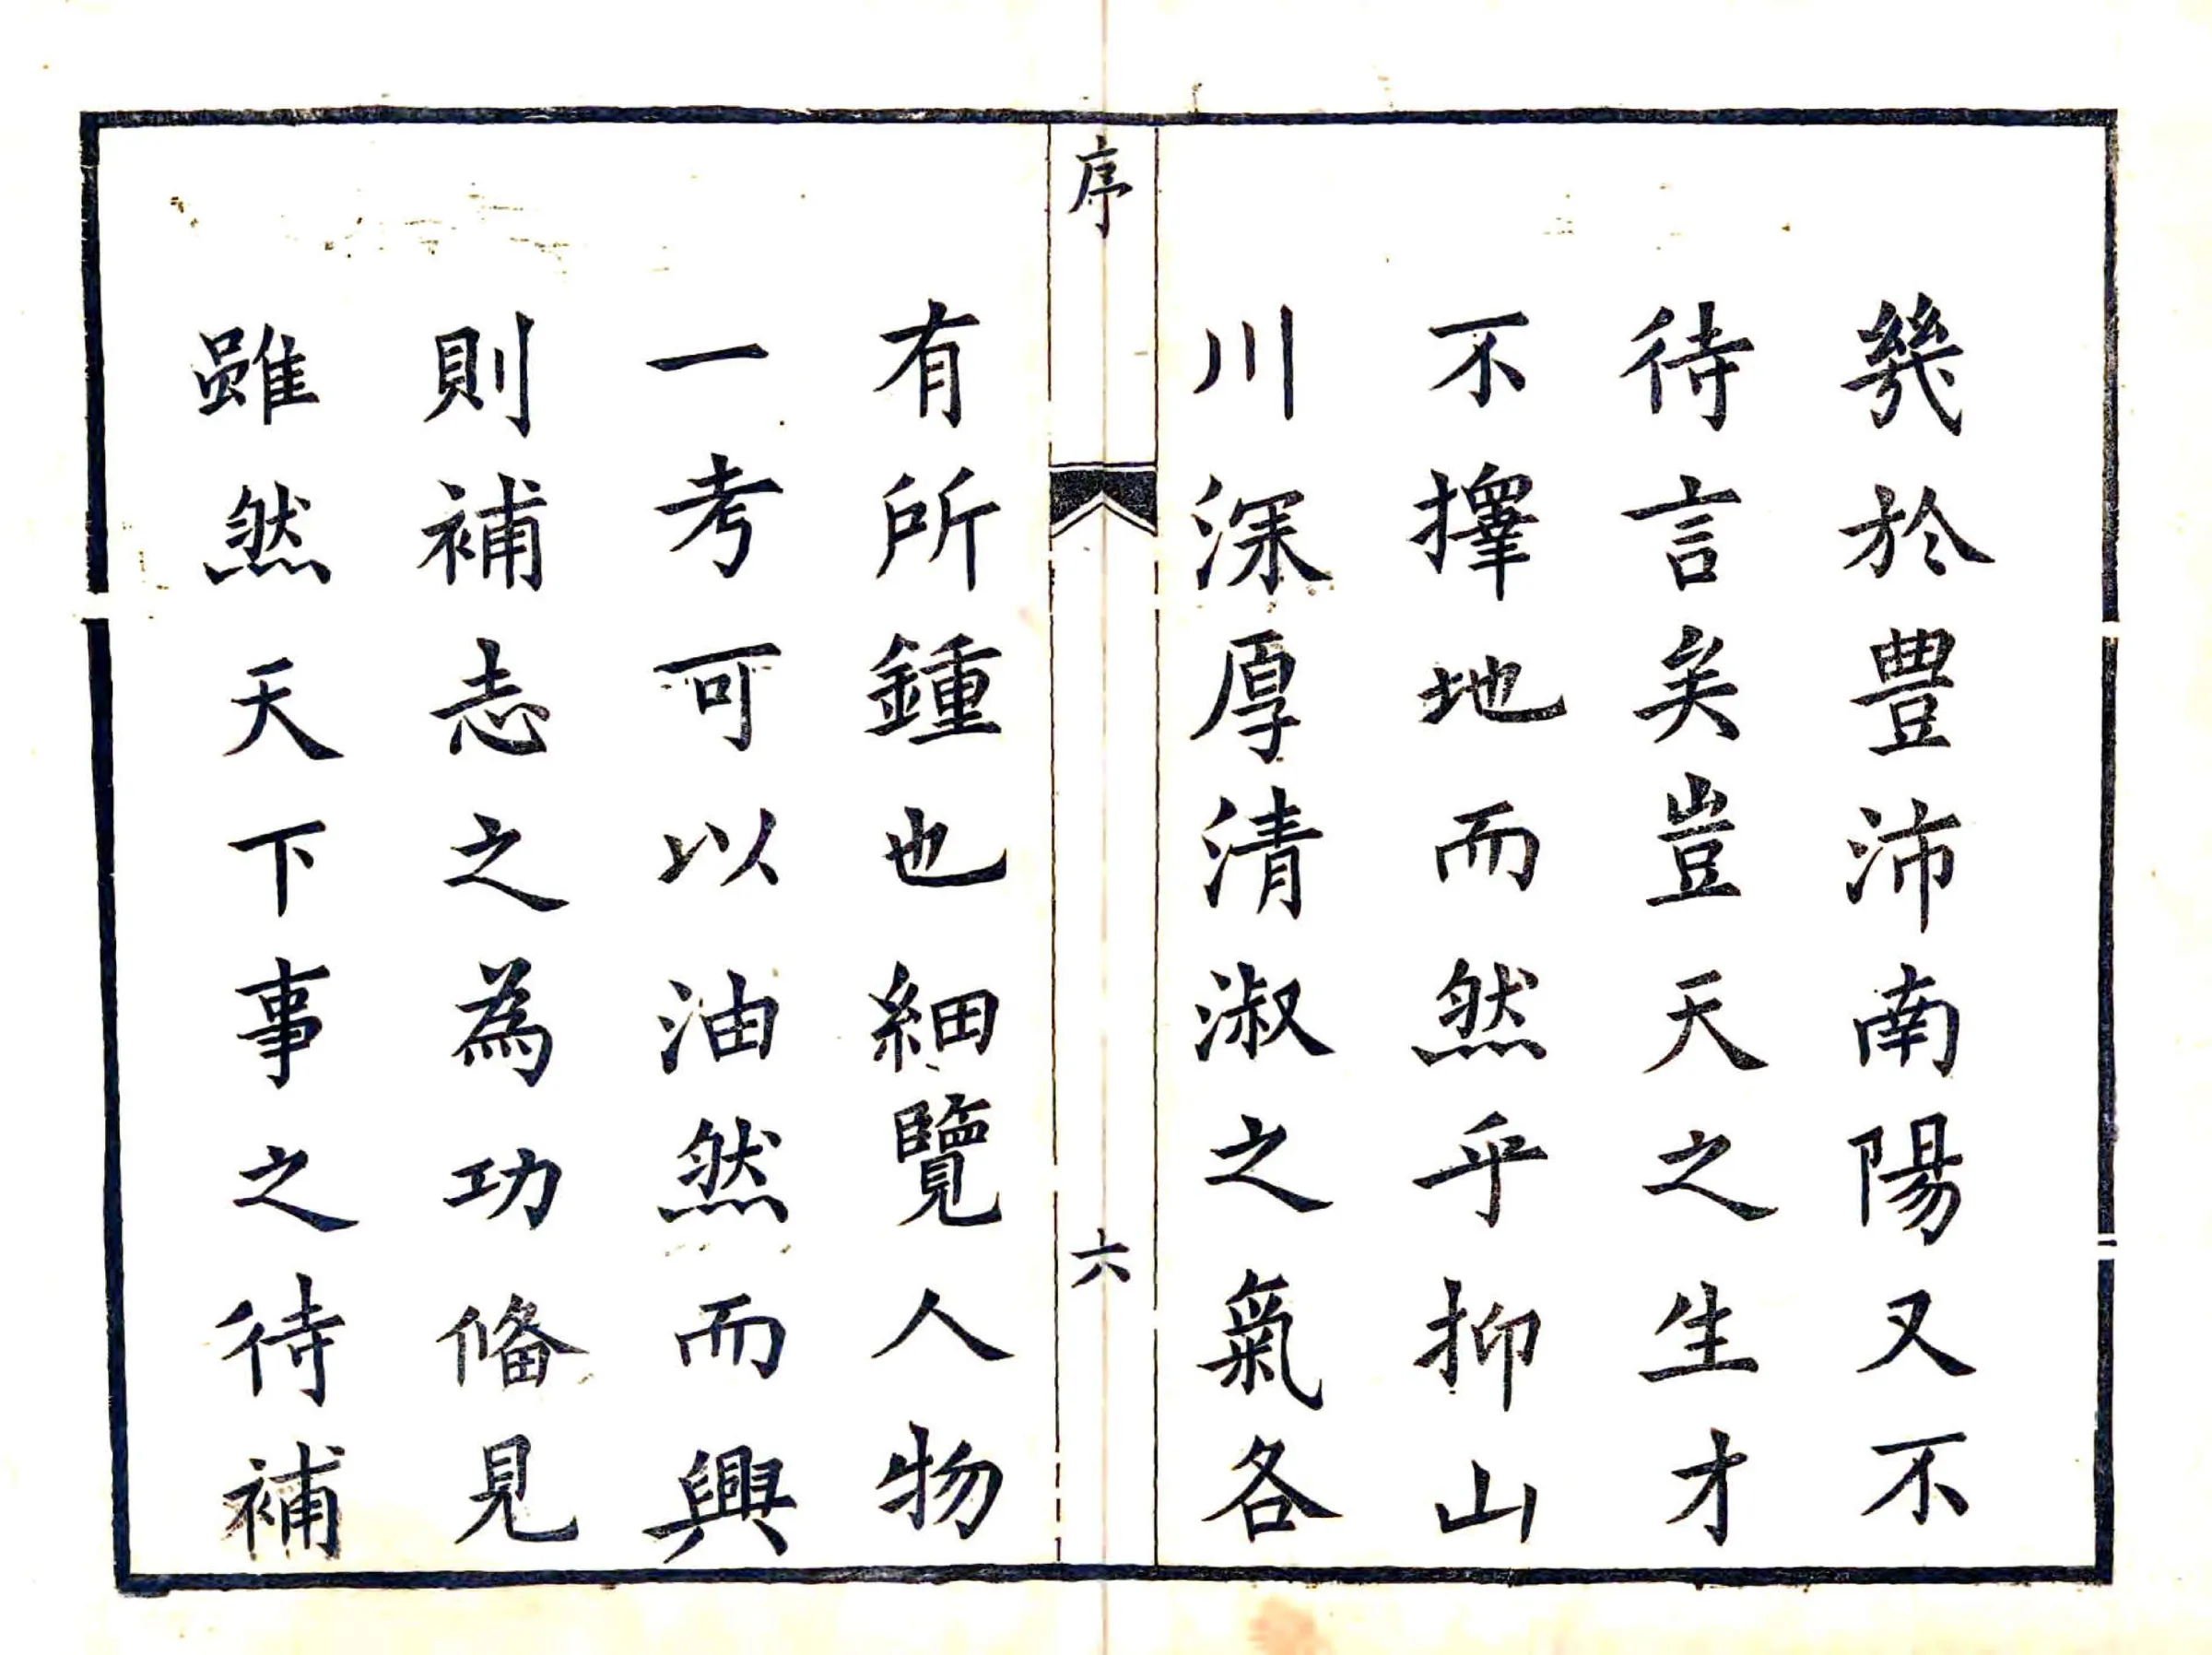 幾於豊沛南陽又不
待言矣豈天之生才
不擇地而然乎抑山
川深厚清淑之氣各
序
六
有所鍾也細覽人物
一考可以油然而興
則補志之為功偹見
雖然天下事之待補